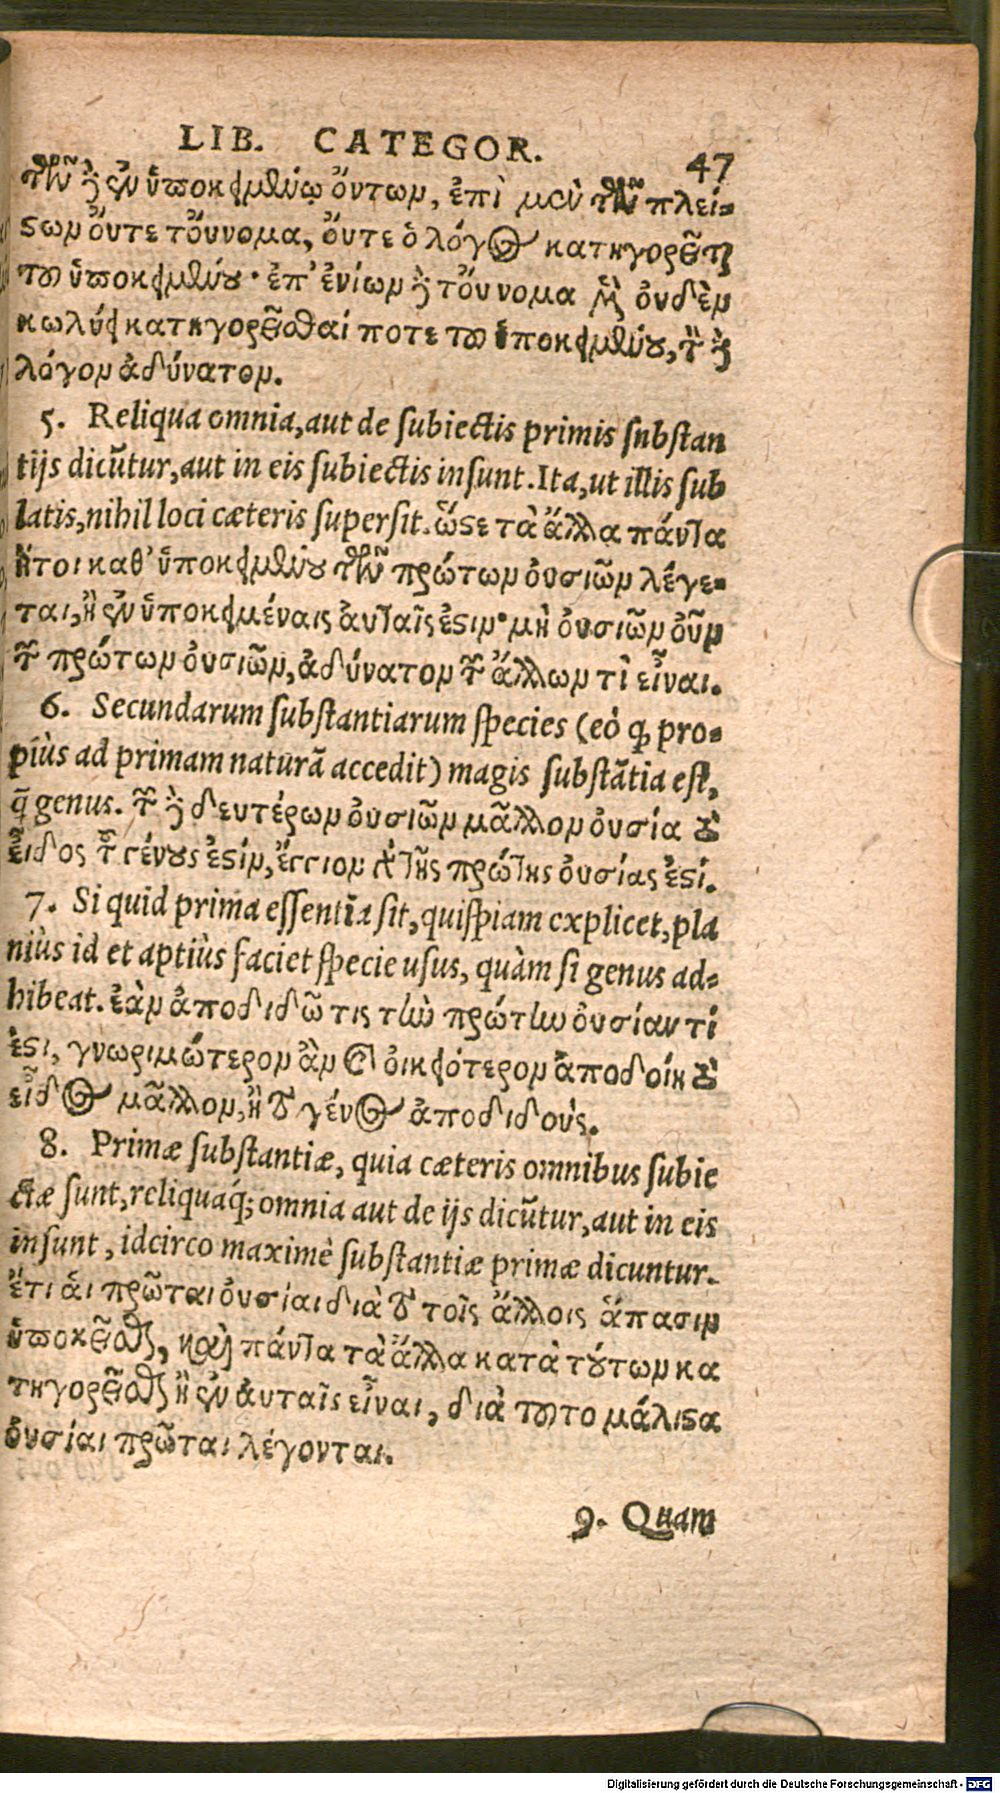 LIB. CATEGOR. 47
τῶν δ' ἐν ὑποκειμένῳ ὄντων, ἐπὶ μὲν τῶν πλεί-
στων ὄυτε τὄυνομα, ὄυτε ὁ λόγος κατηγορεῖται
τοῦ ὑποκειμένου· ἐπ' ἐνίων δὲ τὄυνομα μὲν ὀυδὲν
κωλύει κατηγορεῖσθαί ποτε τοῦ ὑποκειμένου, τὸν δὲ
λόγον ἀδύνατον.
5. Reliqua omnia, aut de subiectis primis snbstan
tijs dicūtur, aut in eis subiectis insunt. Ita, ut illis sub
latis, nihil loci cæteris supersit. ὥστε τὰ ἄλλα πάντα
ἤτοι καθ' ὑποκειμένου τῶν πρώτων ὀυσιῶν λέγε-
ται, ἢ ἐν ὑποκειμέναις ἀυταῖς ἐστιν· μὴ ὀυσιῶν ὀῦν
τῶν πρώτων ὀυσιῶν, ἀδύνατον τῶν ἄλλων τὶ εἶναι.
6. Secundarum substantiarum species (eò ꝙ pro-
piùs ad primam naturā accedit) magis substātia est,
q̄ genus. τῶν δὲ δευτέρων ὀυσιῶν μᾶλλον ὀυσία τὸ
εἶδος τοῦ γένους ἐστίν, ἔγγιον γὰρ τῆς πρώτης ὀυσίας ἐστί.
7. Si quid prima essentia sit, quispiam explicet, pla
niùs id et aptiùs faciet specie usus, quàm si genus ad-
hibeat. ἐὰν ἀποδιδῶ τις τὴν πρώτην ὀυσίαν τί
ἐστι, γνωριμώτερον ἂν καὶ ὀικειότερον ἀποδοίη τὸ
εἶδος μᾶλλον, ἢ τὸ γένος ἀποδιδοὺς.
8. Primæ substantiæ, quia cæteris omnibus subie
ctæ sunt, reliquaq́; omnia aut de ijs dicūtur, aut in eis
insunt, idcirco maximè substantiæ primæ dicuntur.
ἔτι ἁι πρῶται ὀυσίαι διὰ τὸ τοῖς ἄλλοις ἅπασιν
ὑποκεῖσθαι, καὶ πάντα τὰ ἄλλα κατὰ τούτων κα
τηγορεῖσθαι ἢ ἐν ἀυταῖς εἶναι, διὰ τοῦτο μάλιστα
ὀυσίαι πρῶται λέγονται.
9. Quam
Digitalisierung gefördert durch die Deutsche Forschungsgemeinschaft - DFG